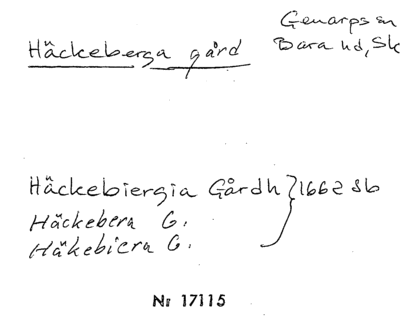 Genarps sn
Häckeberga gård Bara hd, Sk
Häckebiergia Gårdh } 1662 Jb
Häckebera G.
Häkebiera G.
Nr 17115